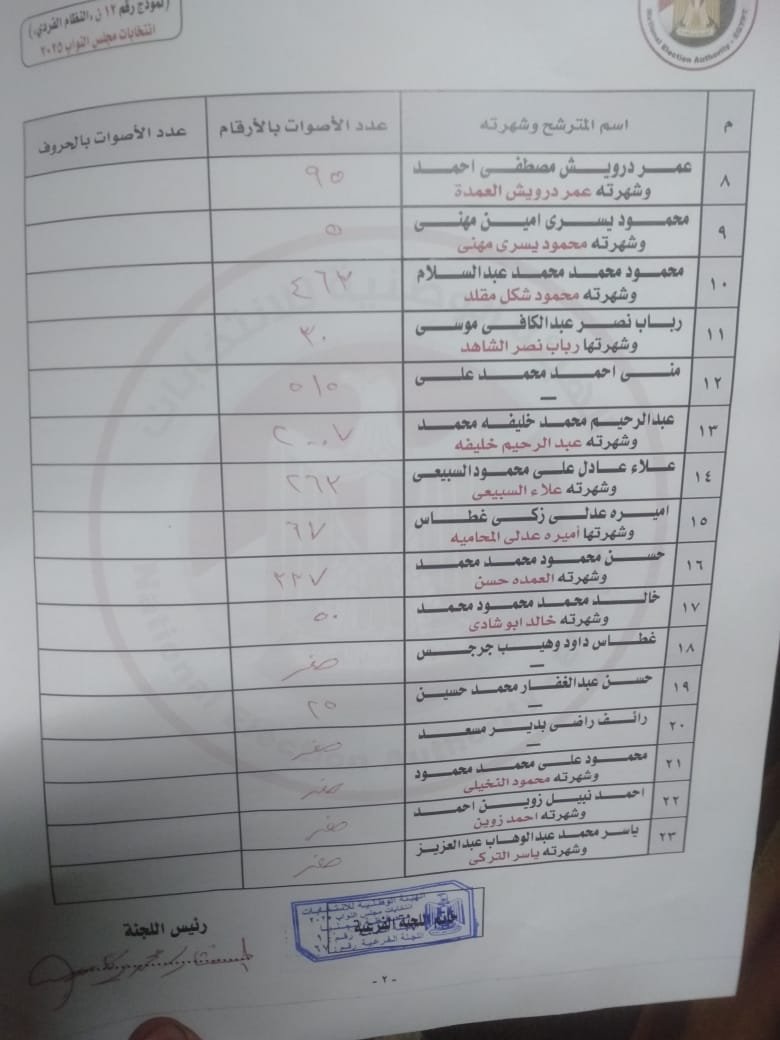 (نموذج رقم ١٢ ن، النظام الفردي)
انتخابات مجلس النواب ٢٠٢٥
National Election Authority - EGYPT
م
اسم المترشح وشهرته
عدد الأصوات بالأرقام
عدد الأصوات بالحروف
٨
عمر درويش مصطفى احمد
وشهرته عمر درويش العمدة
٩٥
٩
محمود يسرى امين مهنى
وشهرته محمود يسرى مهنى
٥
١٠
محمود محمد محمد عبدالسلام
وشهرته محمود شكل مقلد
٤٦٢
١١
رباب نصر عبدالكافى موسى
وشهرتها رباب نصر الشاهد
٣٠
١٢
منى احمد محمد على
—
٥١٥
١٣
عبدالرحيم محمد خليفه محمد
وشهرته عبد الرحيم خليفه
٢٠٠٧
١٤
علاء عادل على محمود السبيعى
وشهرته علاء السبيعى
٢٦٢
١٥
اميره عدلى زكى غطاس
وشهرتها أميره عدلى المحاميه
٦٧
١٦
حسن محمود محمد محمد
وشهرته العمده حسن
٢٢٧
١٧
خالد محمد محمود محمد
وشهرته خالد ابو شادى
٥٠
١٨
غطاس داود وهيب جرجس
—
صفر
١٩
حسن عبدالغفار محمد حسين
—
٢٥
٢٠
رائف راضى بدير مسعد
—
صفر
٢١
محمود على محمد محمود
وشهرته محمود النخيلى
صفر
٢٢
احمد نبيل زوين احمد
وشهرته احمد زوين
صفر
٢٣
ياسر محمد عبدالوهاب عبدالعزيز
وشهرته ياسر التركى
صفر
خاتم اللجنة الفرعية
الهيئة الوطنية للانتخابات
انتخابات مجلس النواب ٢٠٢٥
اللجنة الفرعية رقم: ٦٧
رئيس اللجنة
- ٢ -